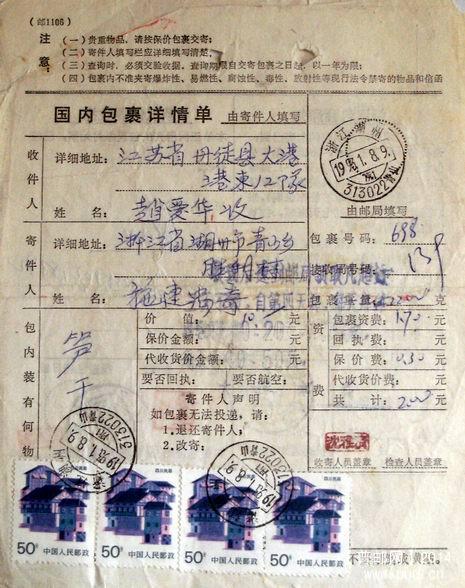 (邮1106)
注意：
(一) 贵重物品，请按保价包裹交寄；
(二) 寄件人填写栏应详细填写清楚；
(三) 查询时，必须交验收据，查询期限自交寄包裹之日起，以一年为限；
(四) 包裹内不准夹寄爆炸性、易燃性、腐蚀性、毒性、放射性等现行法令禁寄的物品和信函
国内包裹详情单 由寄件人填写
收件人 详细地址： 江苏省丹徒县大港
港东12队
姓名： 赵爱华 收
浙江 湖州
1991.8.9.
313022
由邮局填写
寄件人 详细地址： 浙江省湖州市青山乡
包裹号码： 698
接收局号码： 139
姓名： 施建
包裹重量： 克
包内装有何物 笋干
价值： 10.00 元
保价金额： 元
代收货价金额： 元
要否回执： 要否航空：
寄件人声明
如包裹无法投递，请：
1.退还寄件人；
2.改寄：
资费
包裹资费： 1.70 元
回执费： 元
保价费： 0.30 元
代收货价费： 元
共计： 2.00 元
收寄人员盖章 检查人员盖章
313022
1991.8.9
313022
1991.8.9
四川民居
50分 中国人民邮政
50分 中国人民邮政
50分 中国人民邮政
50分 中国人民邮政